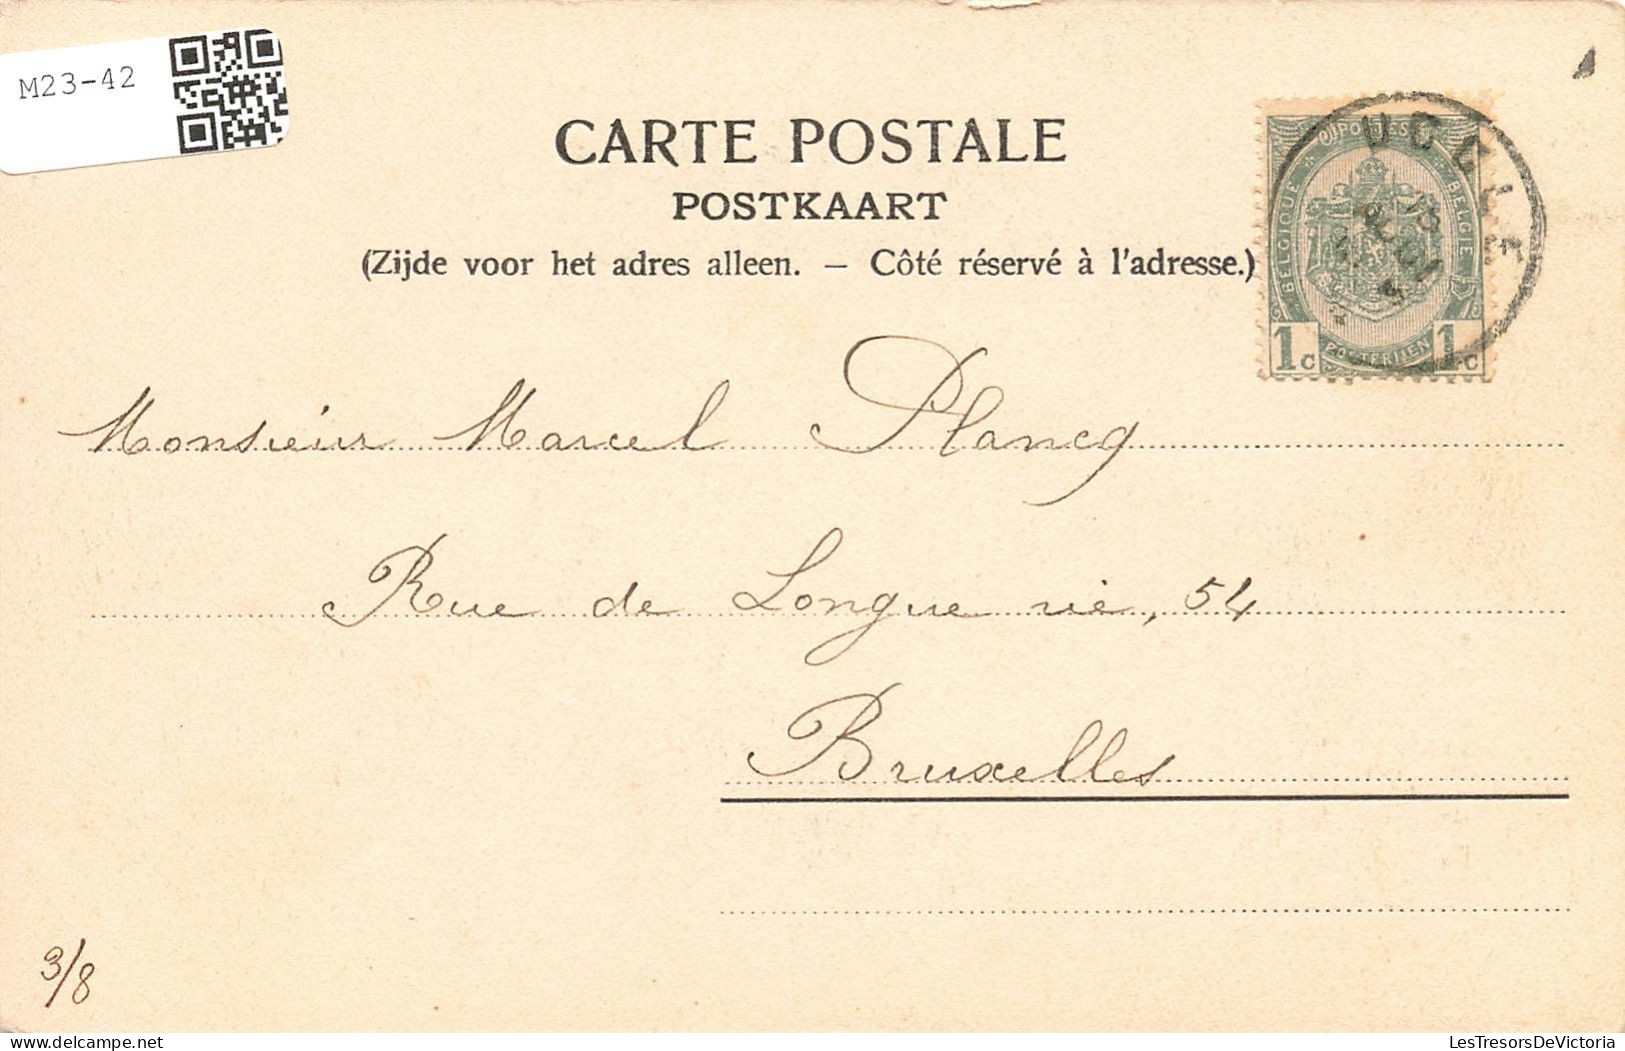 M23-42
CARTE POSTALE
POSTKAART
(Zijde voor het adres alleen. — Côté réservé à l'adresse.)
UCCLE
POSTES
BELGIQUE
BELGIE
1c POSTERIJEN 1c
Monsieur Marcel Plancq
Rue de Longue vie, 54
Bruxelles
3/8
delcampe.net
LesTresorsDeVictoria